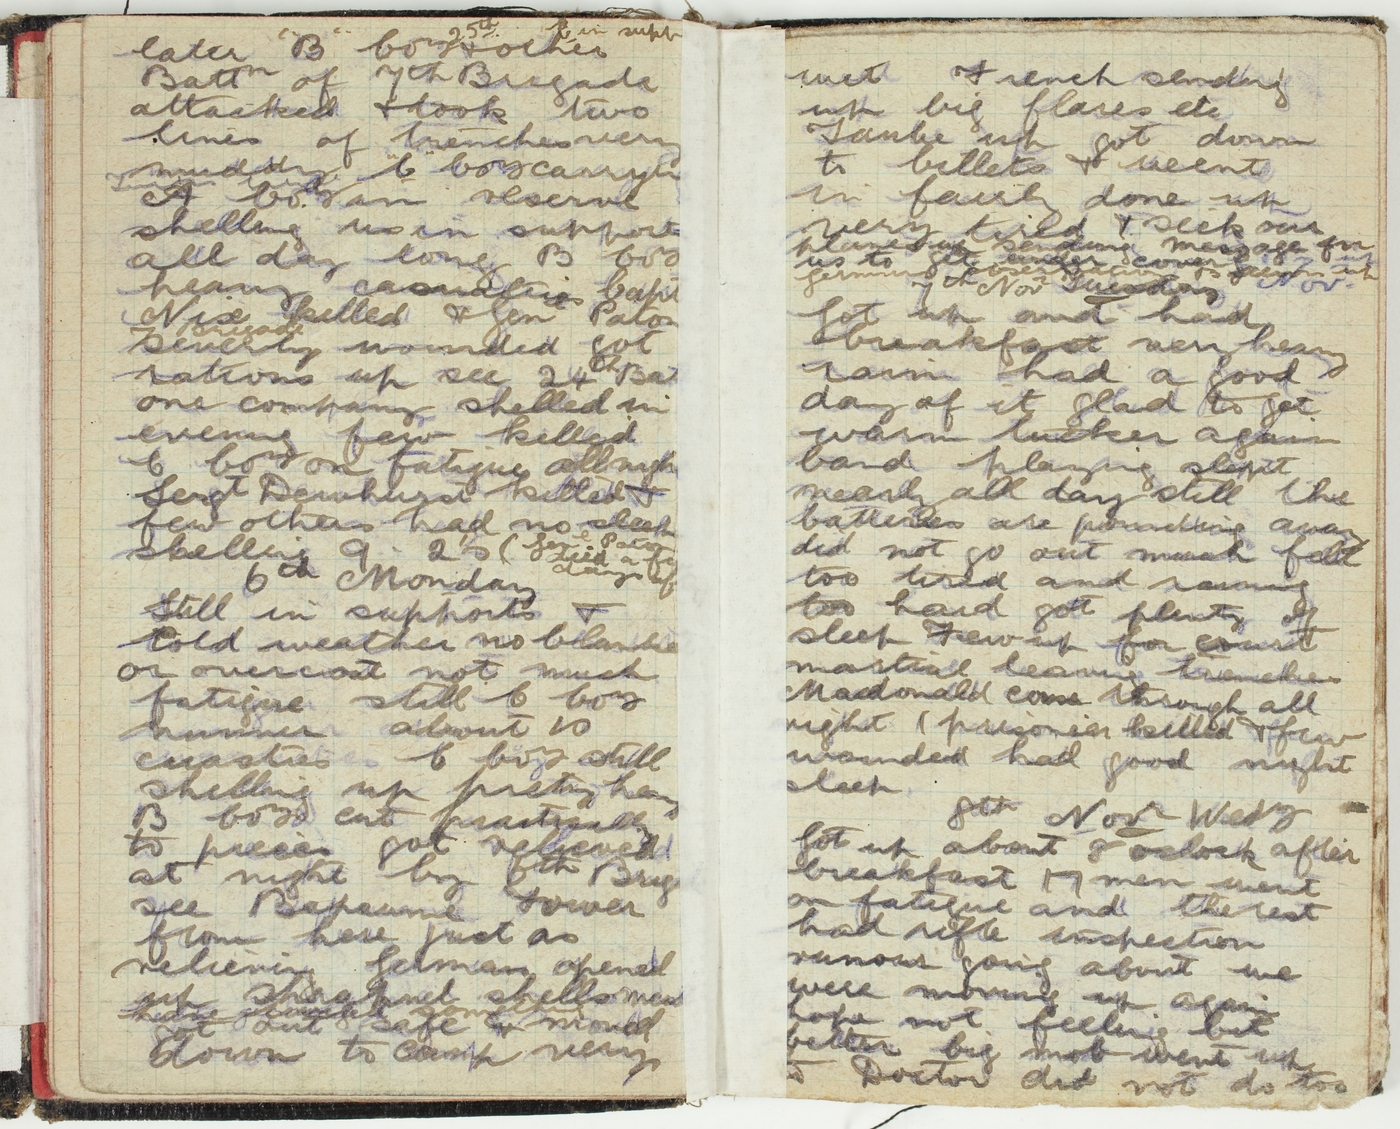 25th in supp
later "B" coy & other
Battn of 7th Brigade
attacked & took two
lines of trenches very
muddy "C" coy carryin
A Coy in reserve
shelling us in supports
all day long B coy
heavy casualties Capt
Nix killed & Gen Paton
7 Brigade
Severly wounded got
rations up see 24th Bat
one company shelled in
evening few killed
C coy on fatigue all nigh
Sergt Dewhurst killed &
few others had no sleep
shelling 9.2's (Genl Paton
died a few
days
6th Monday
Still in supports &
Cold weather no blanke
or overcoat not much
fatigue still C coy
runner about 10
cuasties C coy still
shelling up pretty heavy
B coy cut practically
to pieces got relieved
at night by 5th Brig
see Bapaume Tower
from here just as
relieving German opened
up shrapnel shells
got out safe & moved
down to camp very
wet French sending
up big flares etc
Taube up got down
to billets & went
in fairly done up
very tired & seek our
planes up sending message for
us to get under cover
german observation
7th Nov Tuesday
Got up and had
breakfast very heavy
rain had a good
day of it glad to get
warm tucker again
band playing slept
nearly all day still the
batteries are pounding away
did not go out much felt
too tired and raining
too hard got plenty of
sleep Few up for court
martial leaving trenches
Macdonald come through all
right (prisoner killed & few
wounded had good night
sleep
8th Nov Wedy
Got up about 8 oclock after
breakfast 17 men went
on fatigue and the rest
had rifle inspection
rumour going about we
were moving up again
hope not feeling bit
better big mob went up
to Doctor did not do too